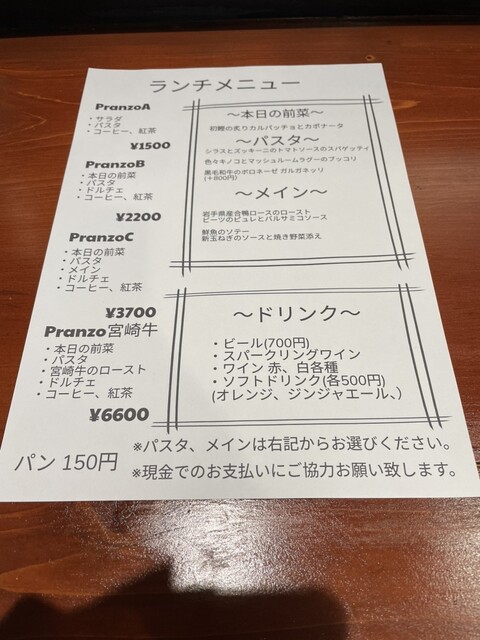 ランチメニュー
PranzoA
・サラダ
・パスタ
・コーヒー、紅茶
¥1500
PranzoB
・本日の前菜
・パスタ
・ドルチェ
・コーヒー、紅茶
¥2200
PranzoC
・本日の前菜
・パスタ
・メイン
・ドルチェ
・コーヒー、紅茶
¥3700
Pranzo宮崎牛
・本日の前菜
・パスタ
・宮崎牛のロースト
・ドルチェ
・コーヒー、紅茶
¥6600
パン 150円
〜本日の前菜〜
初鰹の炙りカルパッチョとカポナータ
〜パスタ〜
シラスとズッキーニのトマトソースのスパゲッティ
色々キノコとマッシュルームラグーのブッコリ
黒毛和牛のボロネーゼ ガルガネッリ
(+800円)
〜メイン〜
岩手県産合鴨ロースのロースト
ビーツのピュレとバルサミコソース
鮮魚のソテー
新玉ねぎのソースと焼き野菜添え
〜ドリンク〜
・ビール(700円)
・スパークリングワイン
・ワイン 赤、白各種
・ソフトドリンク(各500円)
(オレンジ、ジンジャエール、)
※パスタ、メインは右記からお選びください。
※現金でのお支払いにご協力お願い致します。